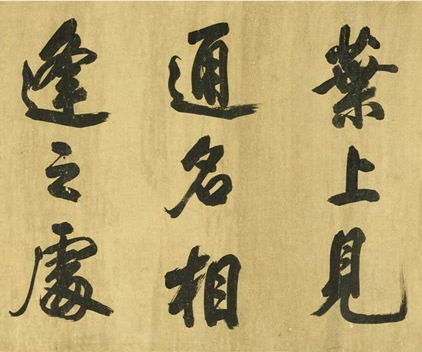 葉上見
通名相
逢之處